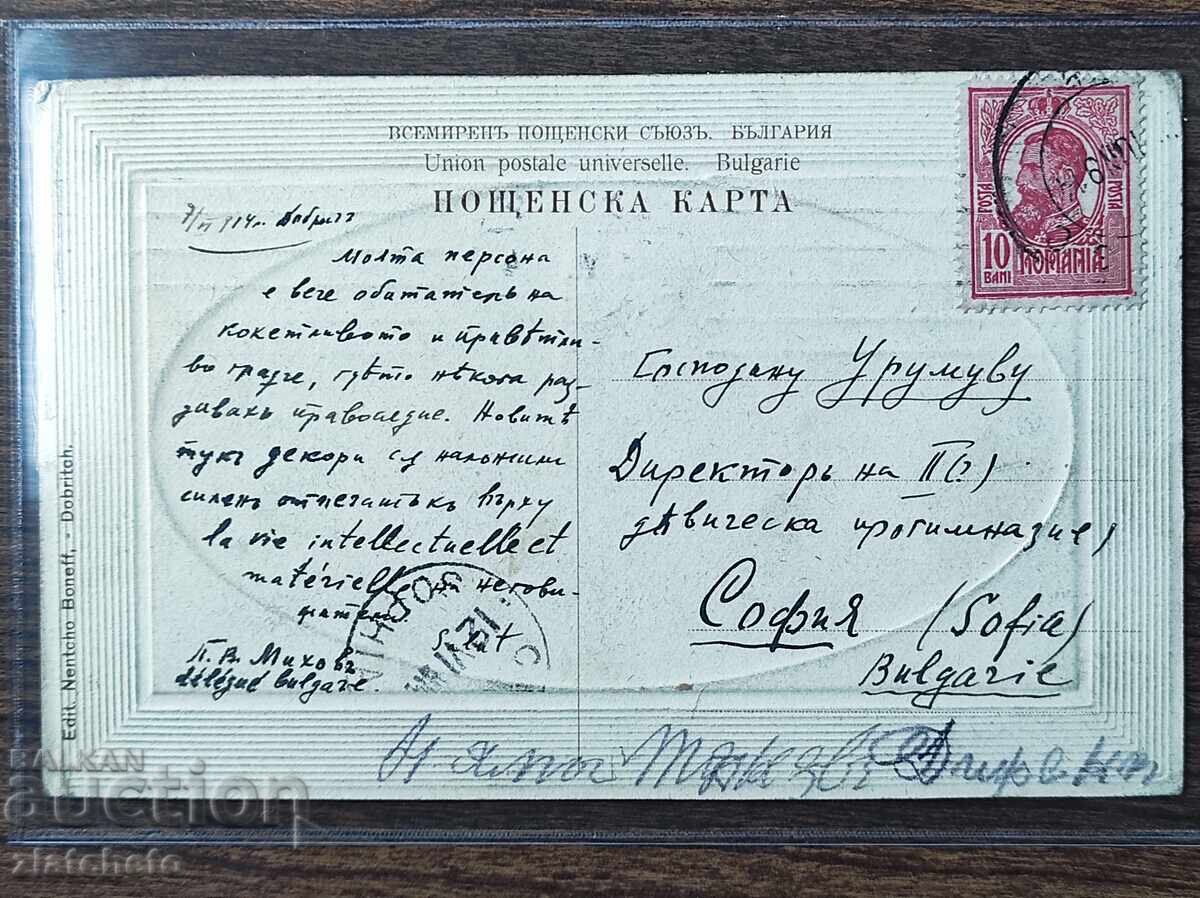 ВСЕМИРЕНЪ ПОЩЕНСКИ СЪЮЗЪ. БЪЛГАРИЯ
Union postale universelle. Bulgarie
ПОЩЕНСКА КАРТА
7/VI 914 г. Добричъ
Моята персона
е вече обитатель на
кокетливото и привѣтли-
во градче, гдѣто нѣкога раз-
давахъ правосѫдие. Новитѣ
тукъ декори сѫ наложили
силенъ отпечатъкъ върху
la vie intellectuelle et
matérielle на негови-
жители.
Salut
П. В. Миховъ
délégué bulgare.
POSTA
POSTA
10
BANI
ROMANIA
Господину Урумуву
Директоръ на II (?)
дѣвическа прогимназия,
София (Sofia)
Bulgarie
Няма такъвъ Директоръ
Edit. Nentcho Boneff, - Dobritch.
BALKAN
auction
zlatcheto